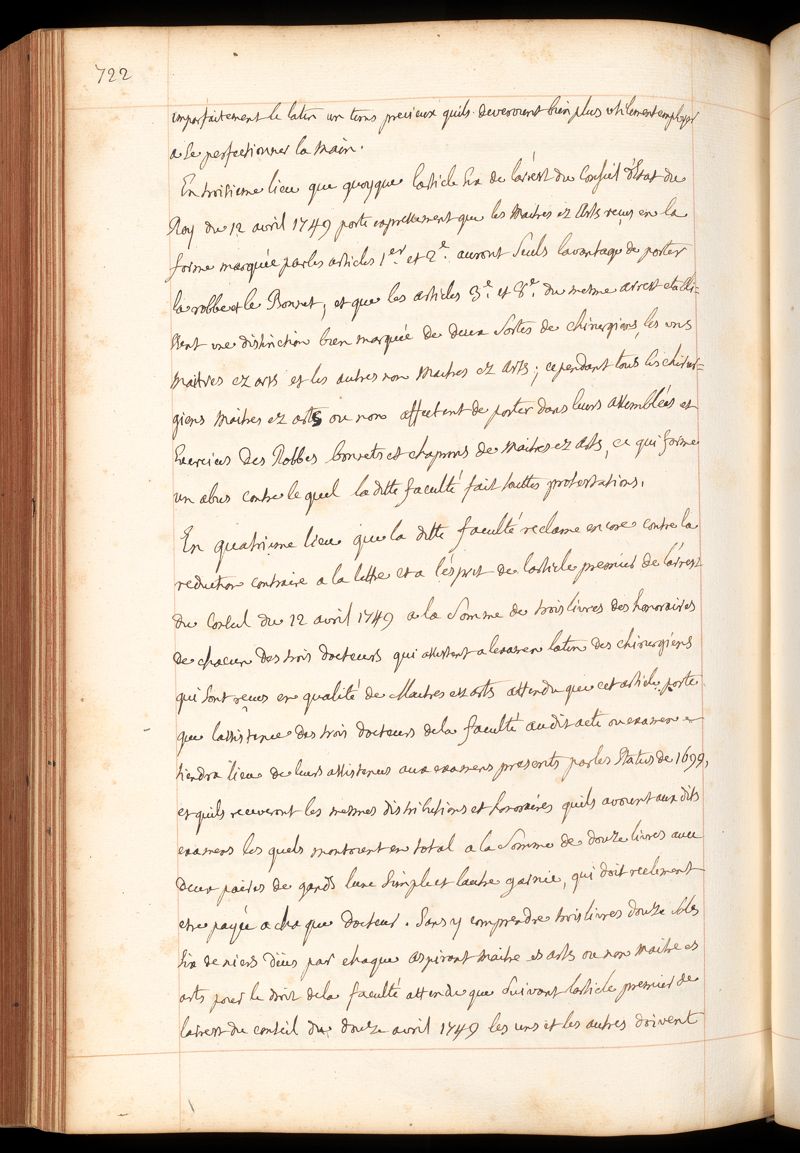 722
imparfaitement le latin un tems precieux quils deveroient bien plus utilement employer
a se perfectionner la main.
En troisieme lieu que quoyque larticle six de larrest du Conseil d'Estat du
Roy du 12 avril 1749 porte expressement que les Maitres ez Arts reçus en la
forme marquée par les articles 1er. et 2e. auront seuls lavantage de porter
la robbe et le Bonnet, et que les articles 3e. et 8e. du mesme arrest establis=
sent une distinction bien marquée de deux sortes de chirurgiens, les uns
maitres ez arts et les autres non maitres ez arts; cependant tous les chirur=
giens maitres ez arts ou non affectent de porter dans leurs assemblées et
Exercices des Robbes bonnets et chaprons de maitres ez arts, ce qui forme
un abus contre le quel la ditte faculté fait touttes protestations.
En quatrieme lieu que la ditte faculté reclame encore contre la
reduction contraire a la lettre et a lésprit de larticle premier de lárrest
du Conseil du 12 avril 1749 a la somme de trois livres des honoraires
de chacun des trois docteurs qui assistent a lexamen latin des chirurgiens
qui sont reçus en qualité de Maitres ez arts attendu que cet article porte
que lassistence des trois docteurs de la faculté au dit acte ou examen
tiendra lieu de leurs assistences aux examens prescrits par les Statuts de 1699,
et quils receveront les mesmes distributions et honoraires quils avoient aux dits
examens les quels montoient en total a la somme de douze livres avec
deux paires de gands lune simple et lautre garnie, qui doit reelement
etre payée a chaque docteur. Sans y comprendre trois livres douze sols
six deniers düs par chaque aspirant maitre es arts ou non maitre es
arts pour le droit de la faculté attendu que suivant larticle premier de
larrest du conseil du douze avril 1749 les uns et les autres doivent